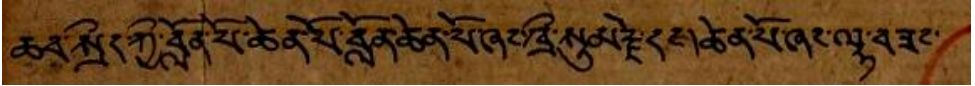 ཆབ་སྲིད་ཀྱི་བློན་པོ་ཆེན་པོ་བློན་ཆེན་པོ་ཞང་ཁྲི་སུམ་རྗེ་དང་།ཆེན་པོ་ཞང་ལྷ་བཟང་